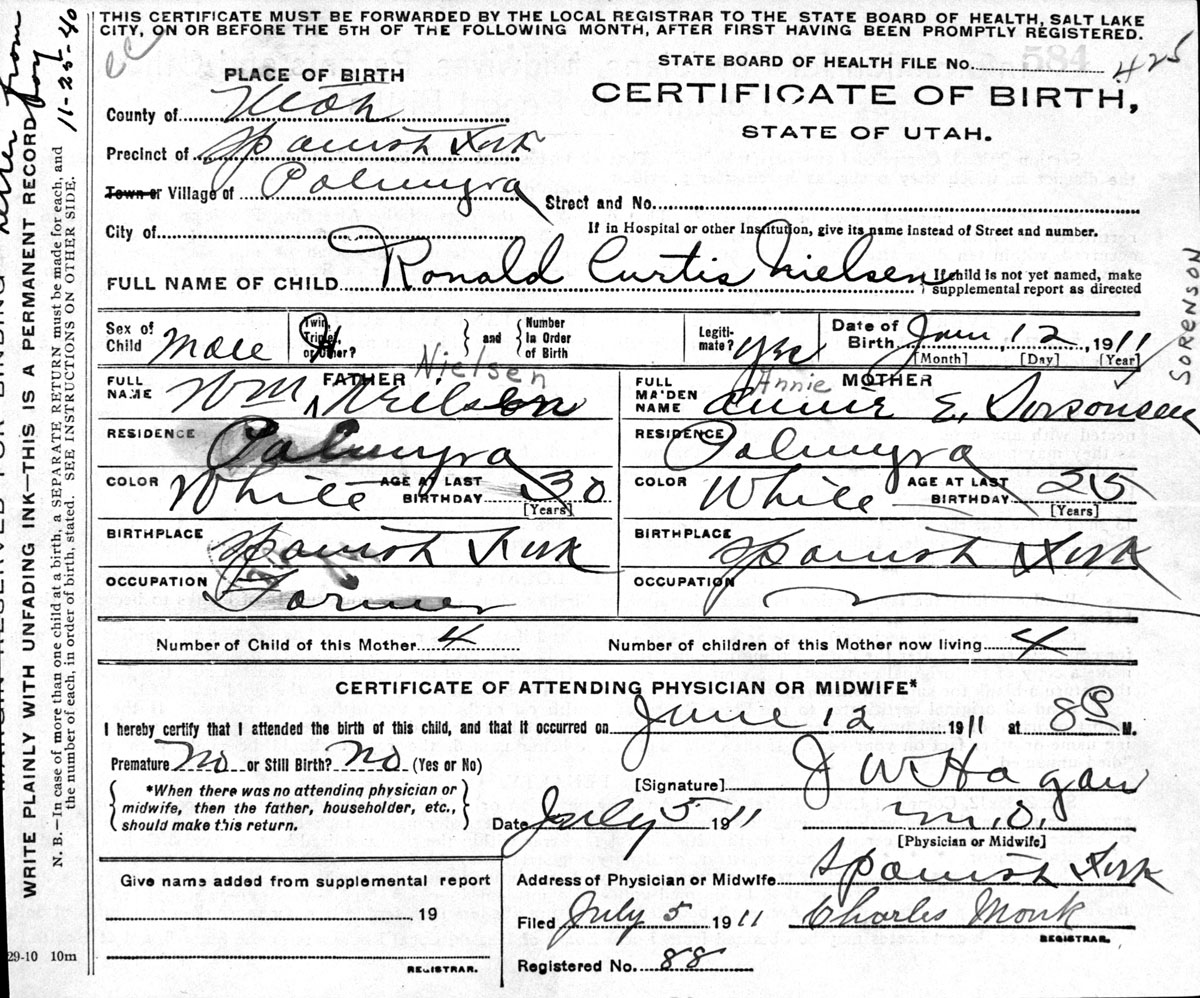 THIS CERTIFICATE MUST BE FORWARDED BY THE LOCAL REGISTRAR TO THE STATE BOARD OF HEALTH, SALT LAKE
CITY, ON OR BEFORE THE 5TH OF THE FOLLOWING MONTH, AFTER FIRST HAVING BEEN PROMPTLY REGISTERED.
STATE BOARD OF HEALTH FILE No. 425
PLACE OF BIRTH
CERTIFICATE OF BIRTH,
STATE OF UTAH.
County of Utah
Precinct of Spanish Fork
Town or Village of Palmyra
Street and No.
City of
If in Hospital or other Institution, give its name instead of Street and number.
FULL NAME OF CHILD Ronald Curtis Nielsen
If child is not yet named, make
supplemental report as directed
Sex of Child Male
Twin, Triplet, or Other?
and
Number In Order of Birth
Legiti-mate? Yes
Date of Birth June 12 1911
[Month] [Day] [Year]
FATHER Nielsen
FULL NAME Wm Neilson
RESIDENCE Palmyra
COLOR White AGE AT LAST BIRTHDAY 30
[Years]
BIRTHPLACE Spanish Fork
OCCUPATION Farmer
Annie MOTHER
FULL MAIDEN NAME Annie E.
SORENSON
RESIDENCE Palmyra
COLOR White AGE AT LAST BIRTHDAY 25
[Years]
BIRTHPLACE Spanish Fork
OCCUPATION
Number of Child of this Mother 4
Number of children of this Mother now living 4
CERTIFICATE OF ATTENDING PHYSICIAN OR MIDWIFE*
I hereby certify that I attended the birth of this child, and that it occurred on June 12 1911 at 8 M.
Premature No or Still Birth? No (Yes or No)
*When there was no attending physician or
midwife, then the father, householder, etc.,
should make this return.
[Signature] J W Hagan
Date July 5 1911 M.D.
[Physician or Midwife]
Give name added from supplemental report
19
REGISTRAR.
Address of Physician or Midwife Spanish Fork
Filed July 5 1911 Charles Monk
REGISTRAR.
Registered No. 88
29-10 10m
WRITE PLAINLY WITH UNFADING INK—THIS IS A PERMANENT RECORD
N. B.—In case of more than one child at a birth, a SEPARATE RETURN must be made for each, and
the number of each, in order of birth, stated. SEE INSTRUCTIONS ON OTHER SIDE.
from
11-25-40